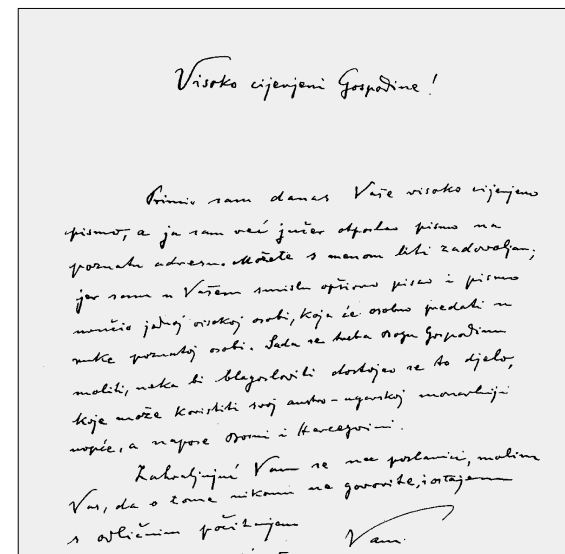 Visoko cijenjeni Gospodine!
Primio sam danas Vaše visoko cijenjeno
pismo, a ja sam već jučer otposlao pismo na
poznatu adresu. Možete s menom biti zadovoljan;
jer sam u Vašem smislu opširno pisao i pismo
uručio jednoj visokoj osobi, koja će osobno predati u
ruke poznatoj osobi. Sada se treba Bogu Gospodinu
moliti, neka bi blagoslovili dostojao se to djelo,
koje može koristiti svoj austro-ugarskoj monarhiji
uopće, a napose Bosni i Hercegovini.
Zahvaljujuć Vam se na poslanici, molim
Vas, da o tome nikomu ne govorite, i ostajem
s odličnim počitanjem
Vami